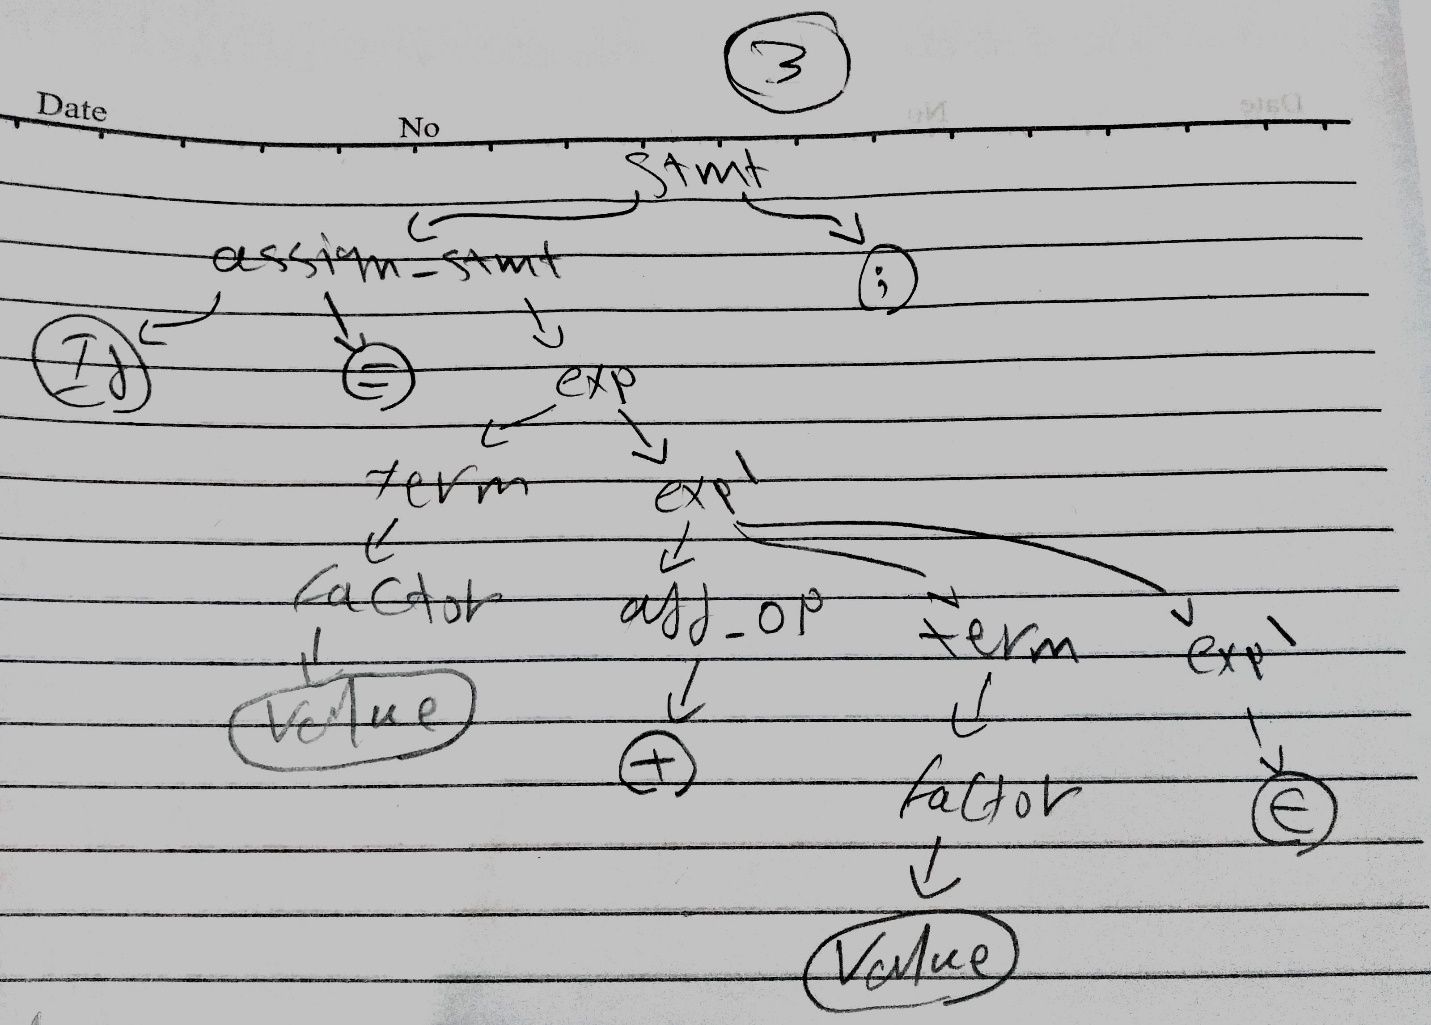 3
Date No
stmt
assign_stmt ;
Id = exp
term exp'
factor add_op term exp'
value + factor ε
value